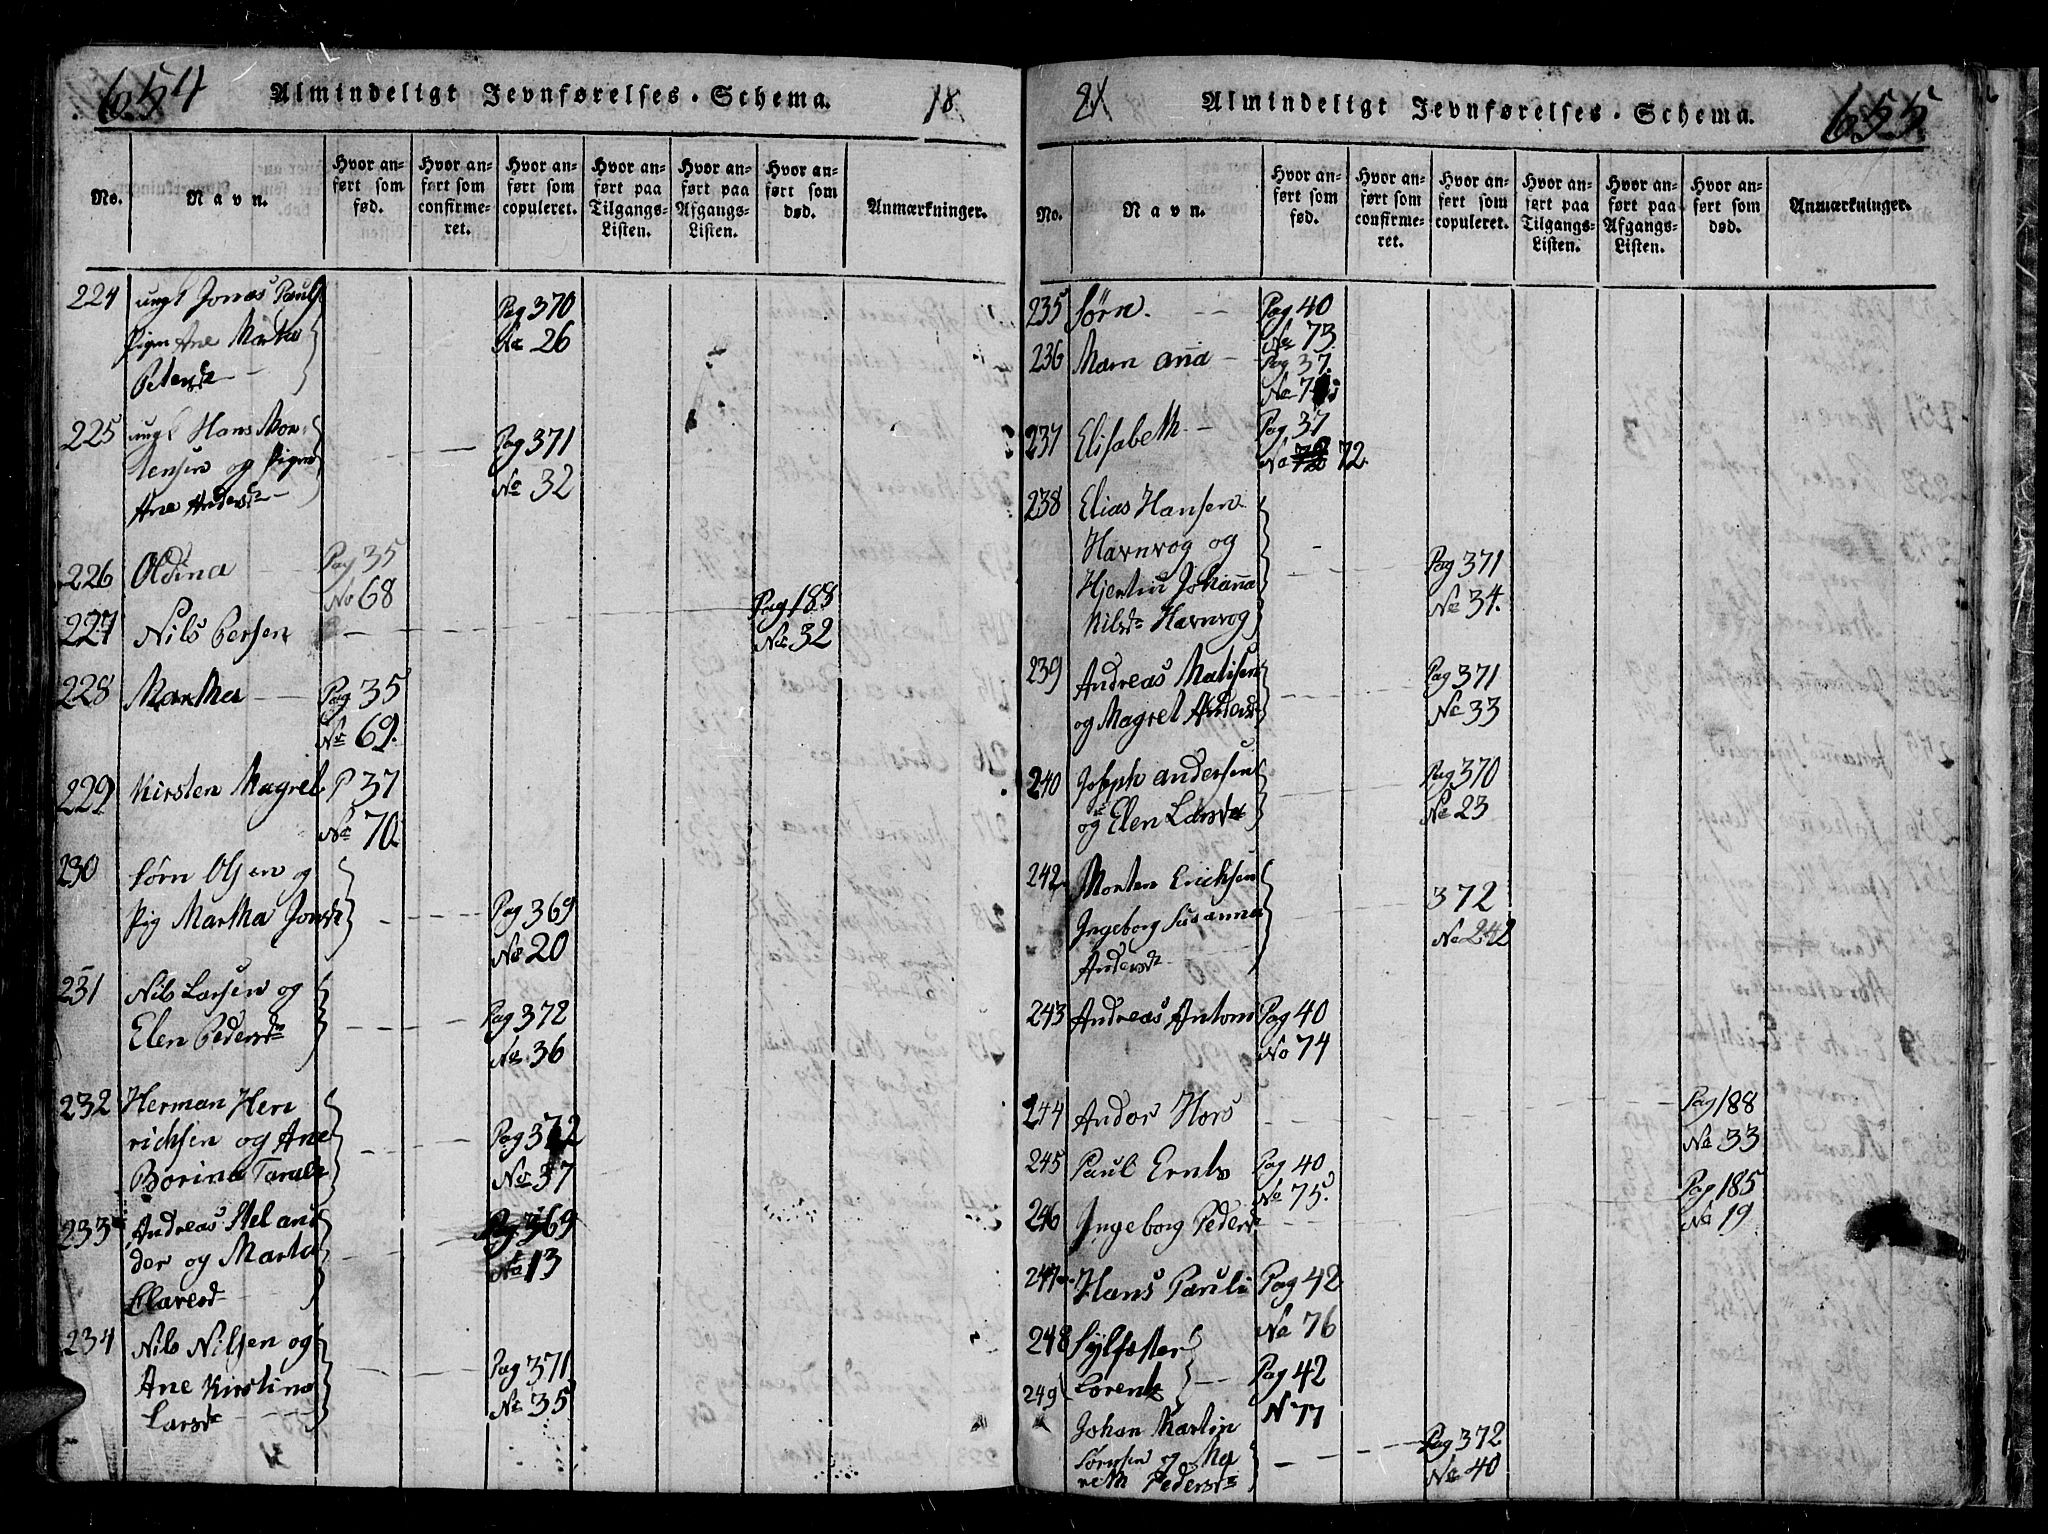 654
Almindeligt Jevnførelses-Schema.
18
No.
Navn.
Hvor an-
ført som
fød.
Hvor an-
ført som
confirme-
ret.
Hvor an-
ført som
copuleret.
Hvor an-
ført paa
Tilgangs-
Listen.
Hvor an-
ført paa
Afgangs-
Listen.
Hvor an-
ført som
død.
Anmærkninger.
224 ungk Jonas Pauls
Pigen Ane Marta Pag 370
Petersd No 26
225 ungk Hans Mor-
tensen og Pigen Pag 371
Ane Andersd No 32
226 Oldina Pag 35
No 68
227 Nils Persen Pag 188
No 32
228 Martha Pag 35
No 69.
229 Kirsten Magret P 37
No 70
230 Sørn Olsen og
Pig Martha Jonsd Pag 369
No 20
231 Nils Larsen og
Elen Pedersd Pag 372
No 36
232 Herman Hen
richsen og Ane Pag 372
Borina No 37
233 Andreas
der og Marta Pag 369
No 13
234 Nils Nilsen og
Ane Kirstina Pag 371
Larsd No 35
21
Almindeligt Jevnførelses-Schema.
655
No.
Navn.
Hvor an-
ført som
fød.
Hvor an-
ført som
confirme-
ret.
Hvor an-
ført som
copuleret.
Hvor an-
ført paa
Tilgangs-
Listen.
Hvor an-
ført paa
Afgangs-
Listen.
Hvor an-
ført som
død.
Anmærkninger.
235 Sørn. Pag 40
No 73
236 Marn ana Pag 37.
No
237 Elisabeth Pag 37
No 72.
238 Elias Hansen
Havnvog og Pag 371
Hjertin Johanna No 34.
Nilsd Havnvog
239 Andreas Matisen Pag 371
og Magret Andersd No 33
240 Joseph andersen Pag 370
og Elen Larsd No 23
242 Morten Ericksen
Ingeborg Susanna 372
Andersd No 242
243 Andreas Antoni Pag 40
No 74
244 Andor Hors Pag 188
No 33
245 Paul Ernts Pag 40
No 75.
246 Ingeborg Pedersd Pag 185
No 19
247 Hans Pauli Pag 42
No 76
248 Sylfæster
Lorents Pag 42
N 77
249 Johan Martin
Sørnsen og Ma Pag 372
reth Pedersd No 40